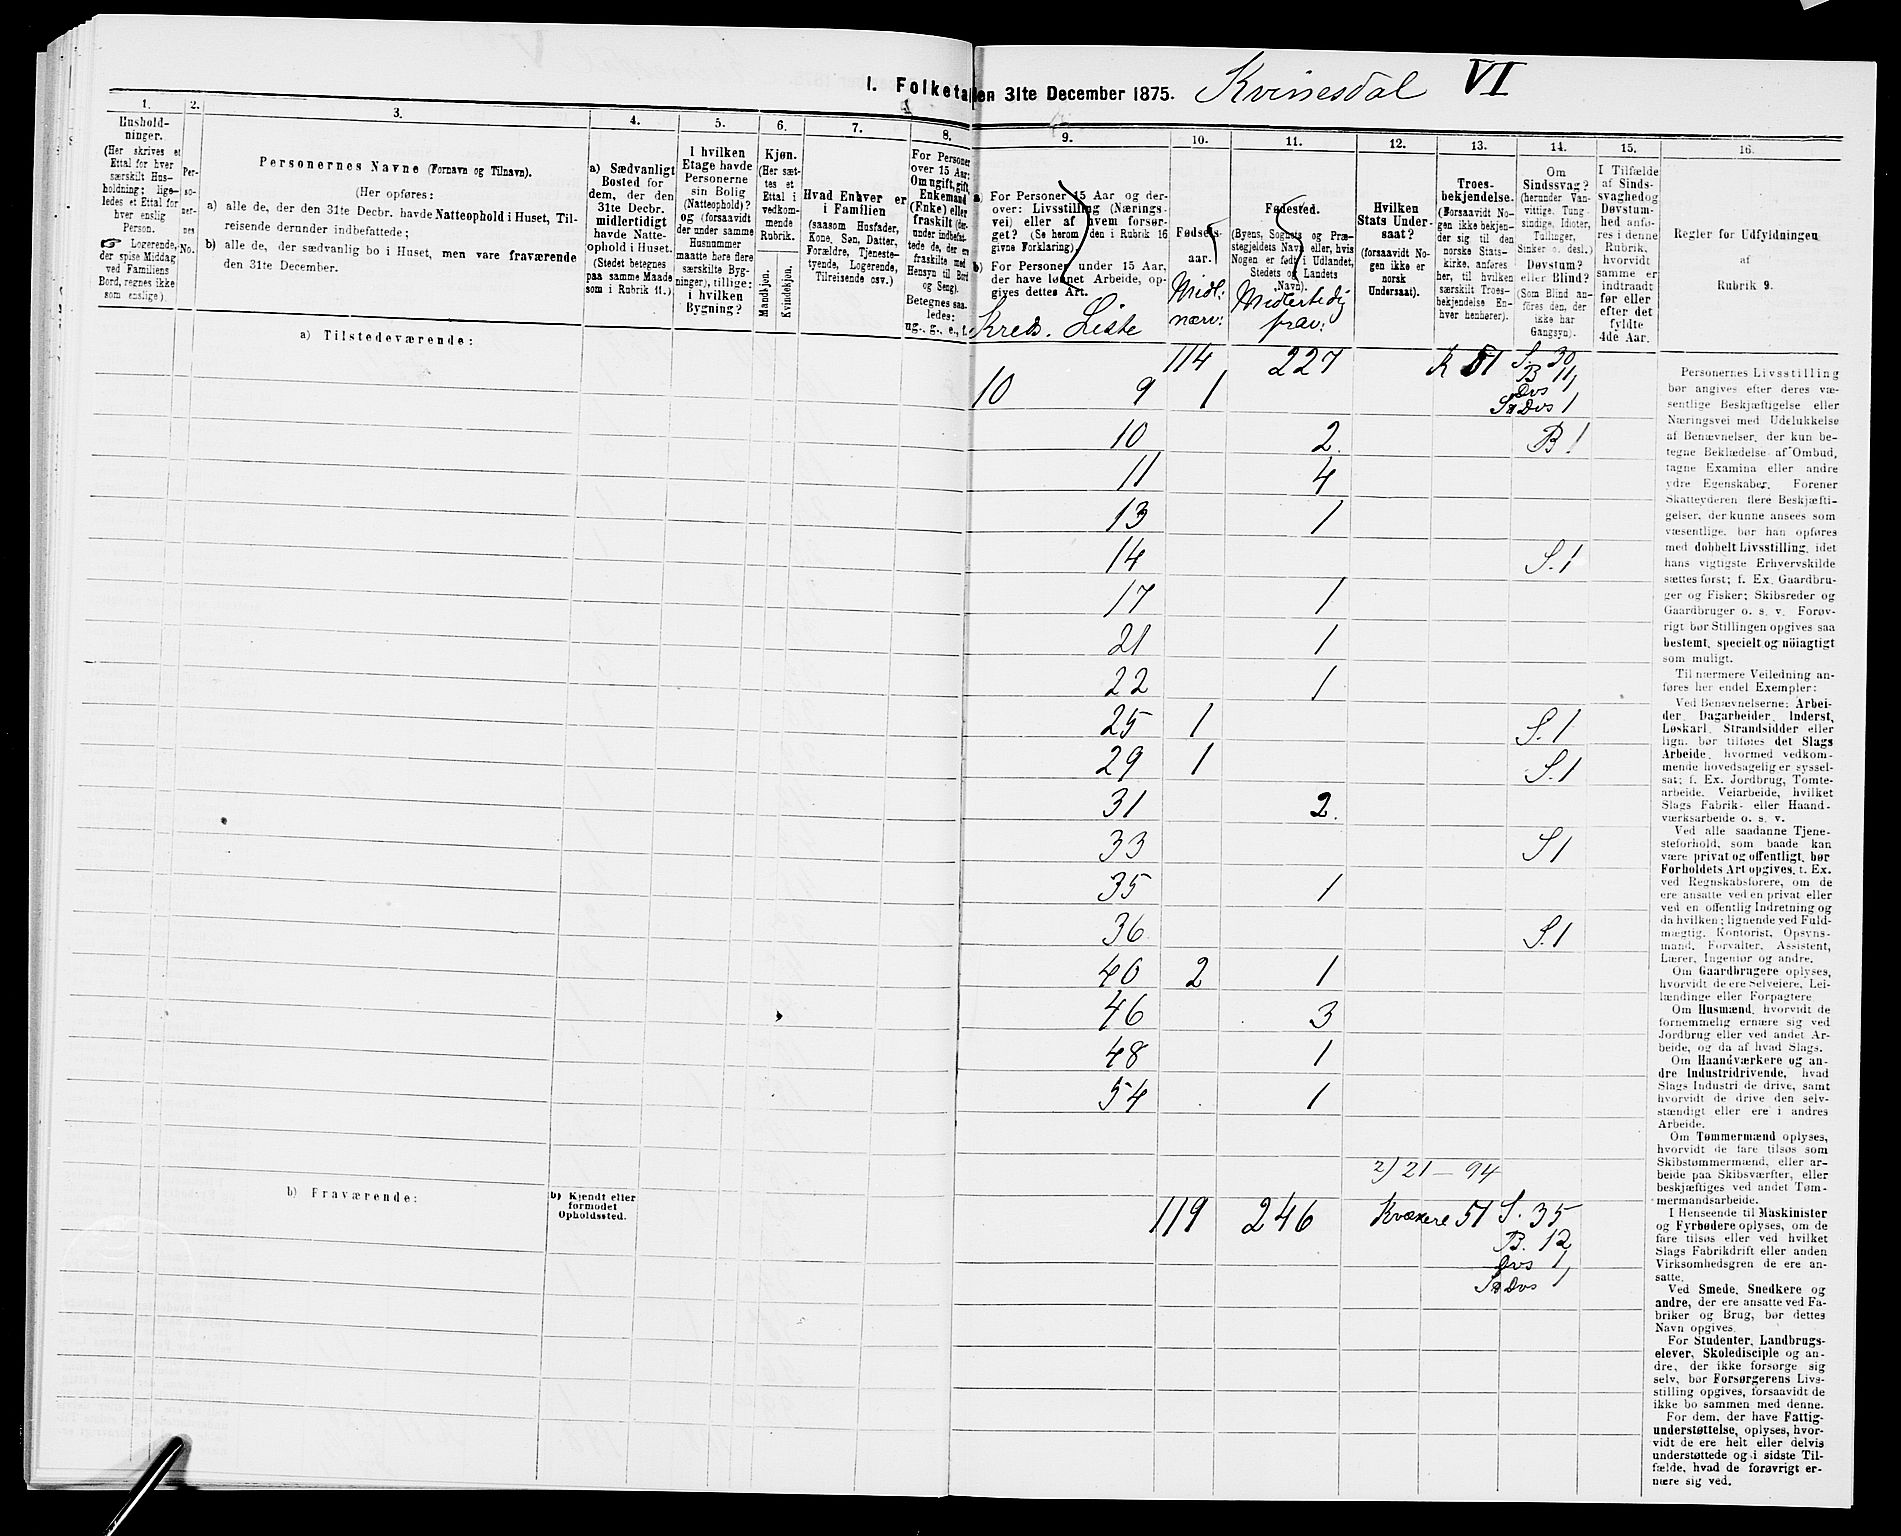 I. Folketallen 31te December 1875. Kvinesdal VI
1.
Hushold-
ninger.
(Her skrives et
Ettal for hver
særskilt Hus-
holdning; lige-
ledes et Ettal for
hver enslig
Person.
Logerende,
der spise Middag
ved Familiens
Bord, regnes ikke
som enslige).
2.
Per-
so-
ner-
nes
No.
3.
Personernes Navne (Fornavn og Tilnavn).
(Her opføres:
a) alle de, der den 31te Decbr. havde Natteophold i Huset, Til-
reisende derunder indbefattede;
b) alle de, der sædvanlig bo i Huset, men vare fraværende
den 31te December.
4.
a) Sædvanligt
Bosted for
dem, der den
31te Decbr.
midlertidigt
havde Natte-
ophold i Huset.
(Stedet betegnes
paa samme Maade
som i Rubrik 11.)
5.
I hvilken
Etage havde
Personerne
sin Bolig
(Natteophold)?
og (forsaavidt
der under samme
Husnummer
maatte høre flere
særskilte Byg-
ninger), tillige:
i hvilken
Bygning?
6.
Kjøn.
(Her sæt-
tes et
Ettal i
vedkom-
mende
Rubrik.
Mandkjøn.
Kvindekjøn.
7.
Hvad Enhver er
i Familien
(saasom Husfader,
Kone, Søn, Datter,
Forældre, Tjeneste-
tyende, Logerende,
Tilreisende osv.)
8.
For Personer
over 15 Aar:
Om ugift, gift,
Enkemand
(Enke) eller
fraskilt (der-
under indbefat-
tede de, der ere
fraskilte med
Hensyn til Bord
og Seng).
Betegnes saa-
ledes:
ug., g., e., f.
9.
a) For Personer 15 Aar og der-
over: Livsstilling (Nærings-
vei) eller af hvem forsør-
get? (Se herom den i Rubrik 16
givne Forklaring).
b) For Personer under 15 Aar,
der have lønnet Arbeide, op-
gives dettes Art.
Kreds. Liste
10.
Fødsels-
aar.
Midl:
nærv:
11.
Fødested.
(Byens, Sognets og Præ-
stegjeldets Navn eller, hvis
Nogen er født i Udlandet,
Stedets og Landets
Navn).
Midlertidig
frav:
12.
Hvilken
Stats Under-
saat?
(forsaavidt No-
gen ikke er
norsk
Undersaat).
13.
Troes-
bekjendelse.
(Forsaavidt No-
gen ikke bekjen-
der sig til den
norske Stats-
kirke, anføres
her, til hvilken
særskilt Troes-
bekjendelse En-
hver henhører).
14.
Om
Sindssvag?
(herunder Van-
vittige, Tung-
sindige, Idioter,
Tullinger,
Sinker o. desl.)
Døvstum?
eller Blind?
(Som Blind an-
föres den, der
ikke har
Gangsyn).
15.
I Tilfælde
af Sinds-
svaghed og
Døvstum-
hed anfø-
res i denne
Rubrik,
hvorvidt
samme er
indtraadt
før eller
efter det
fyldte
4de Aar.
16.
Regler før Udfyldningen
af
Rubrik 9.
a) Tilstedeværende:
114 227 K 51 S. 30
B 11
Dvs
10 9 1 S Dvs 1
10 2. B 1
11 4
13 1
14 S. 1
17 1
21 1
22 1
25 1 S. 1
29 1 S. 1
31 2.
33 S 1
35 1
36 S. 1
40 2 1
46 3
48 1
54 1
2) 21 — 94
b) Fraværende:
b) Kjendt eller
formodet
Opholdssted.
119 246 Kvækere 51 S. 35
B. 12
Dvs 1
S Dvs 1
Personernes Livsstilling
bør angives efter deres væ-
sentlige Beskjæftigelse eller
Næringsvei med Udelukkelse
af Benævnelser, der kun be-
tegne Beklædelse af Ombud,
tagne Examina eller andre
ydre Egenskaber. Forener
Skatteyderen flere Beskjæfti-
gelser, der kunne ansees som
væsentlige, bør han opføres
med dobbelt Livsstilling, idet
hans vigtigste Erhvervskilde
sættes først; f. Ex. Gaardbru-
ger og Fisker; Skibsreder og
Gaardbruger o. s. v. Forøv-
rigt bør Stillingen opgives saa
bestemt, specielt og nöiagtigt
som muligt.
Til nærmere Veiledning an-
føres her endel Exempler:
Ved Benævnelserne: Arbei-
der, Dagarbeider, Inderst,
Løskarl, Strandsidder eller
lign. bør tilføies det Slags
Arbeide, hvormed vedkom-
mende hovedsagelig er syssel-
sat; f. Ex. Jordbrug, Tomte-
arbeide, Veiarbeide, hvilket
Slags Fabrik- eller Haand-
værksarbeide o. s. v.
Ved alle saadanne Tjene-
steforhold, som baade kan
være privat og offentligt, bør
Forholdets Art opgives, f. Ex.
ved Regnskabsførere, om de
ere ansatte ved en privat eller
ved en offentlig Indretning og
da hvilken; lignende ved Fuld-
mægtig, Kontorist, Opsyns-
mand, Forvalter, Assistent,
Lærer, Ingeniør og andre.
Om Gaardbrugere oplyses,
hvorvidt de ere Selveiere, Lei-
lændinge eller Forpagtere
Om Husmænd, hvorvidt de
fornemmelig ernære sig ved
Jordbrug eller ved andet Ar-
beide, og da af hvad Slags.
Om Haandværkere og an-
dre Industridrivende, hvad
Slags Industri de drive, samt
hvorvidt de drive den selv-
stændigt eller ere i andres
Arbeide.
Om Tømmermænd oplyses,
hvorvidt de fare tilsøs som
Skibstømmermænd, eller ar-
beide paa Skibsværfter, eller
beskjæftiges ved andet Tøm-
mermandsarbeide.
I Henseende til Maskinister
og Fyrbødere oplyses, om de
fare tilsøs eller ved hvilket
Slags Fabrikdrift eller anden
Virksomhedsgren de ere an-
satte.
Ved Smede, Snedkere og
andre, der ere ansatte ved Fa-
briker og Brug, bør dettes
Navn opgives.
For Studenter, Landbrugs-
elever, Skoledisciple og an-
dre, der ikke forsørge sig
selv, bør Forsørgerens Livs-
stilling opgives, forsaavidt de
ikke bo sammen med denne.
For dem, der have Fattig-
understøttelse, oplyses, hvor-
vidt de ere helt eller delvis
understøttede og i sidste Til-
fælde, hvad de forøvrigt er-
nære sig ved.